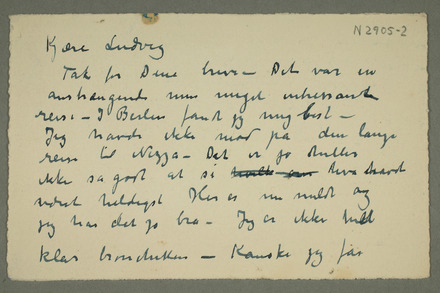 N 2905-2
Kjære Ludvig
Tak for Dine breve – Det var en
anstrængende men meget interessant
reise – I Berlin fandt jeg mig best –
Jeg havde ikke mod på den lange
reise til Nizza – Det er jo heller
ikke så godt at si hvor
veiret heldigst Her er nu mildt og
jeg har det jo bra – Jeg er ikke helt
klar bronchiten – Kanske jeg får